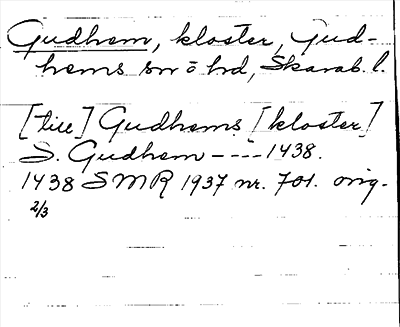 Gudhem, kloster, Gud-
hems sn o hd, Skarab. l.
[till] Gudhems [kloster]
S. Gudhem ---- 1438.
1438 SMR 1937 nr. 701. orig.
2/3